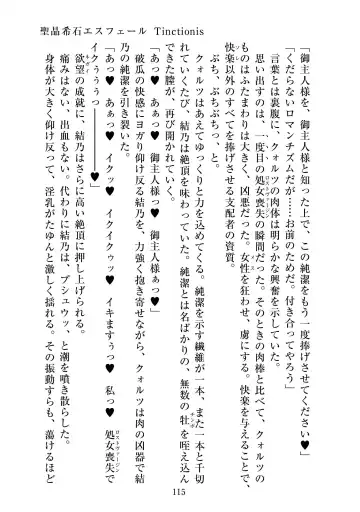 聖晶希石エスフェール Tinctionis
「御主人様を、御主人様と知った上で、この純潔をもう一度捧げさせてください♥」
「くだらないロマンチズムだが……お前のためだ。付き合ってやろう」
　言葉とは裏腹に、クォルツの肉体は明らかな興奮を示していた。
　思い出すのは、一度目の処女喪失の瞬間だった。そのときの肉棒と比べて、クォルツの
ものはふたまわりは大きく、凶悪だった。女性を狂わせ、虜にする。快楽を与えることで、
快楽以外のすべてを捧げさせる支配者の資質。
　ぶちっ、ぶちぶちっ、と。
　クォルツはあえてゆっくりと力を込めてくる。純潔を示す繊維が一本、また一本と千切
れていくたび、結乃は絶頂を味わっていた。純潔とは名ばかりの、無数の牡を咥え込ん
できた膣が、再び開かれていく。
「あっ♥　あぁっ♥　御主人様っ♥　御主人様ぁっ♥」
　破瓜の快感にヨガり仰け反る結乃を、力強く抱き寄せながら、クォルツは肉の凶器で結
乃の純潔を引き裂いた。
「あっ♥　あぁっ♥　イクッ♥　イクイクゥッ♥　イキますぅっ♥　私っ♥　処女喪失で
イクぅぅぅっ――――♥」
　欲望の成就に、結乃はさらに高い絶頂に押し上げられる。
　痛みはない、出血もない。代わりに結乃は、プシュウッ、と潮を噴き散らした。
　身体が大きく仰け反って、淫乳がたゆんと激しく揺れる。その振動すらも、蕩けるほど
115